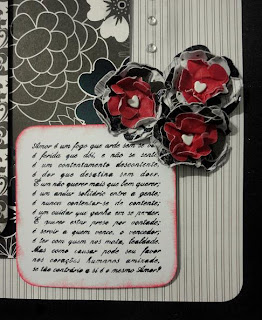 Amor é um fogo que arde sem se ver,
é ferida que dói, e não se sente;
é um contentamento descontente,
é dor que desatina sem doer.
É um não querer mais que bem querer;
é um andar solitário entre a gente;
é nunca contentar-se de contente;
é um cuidar que ganha em se perder.
É querer estar preso por vontade;
é servir a quem vence, o vencedor;
é ter com quem nos mata, lealdade.
Mas como causar pode seu favor
nos corações humanos amizade,
se tão contrário a si é o mesmo Amor?